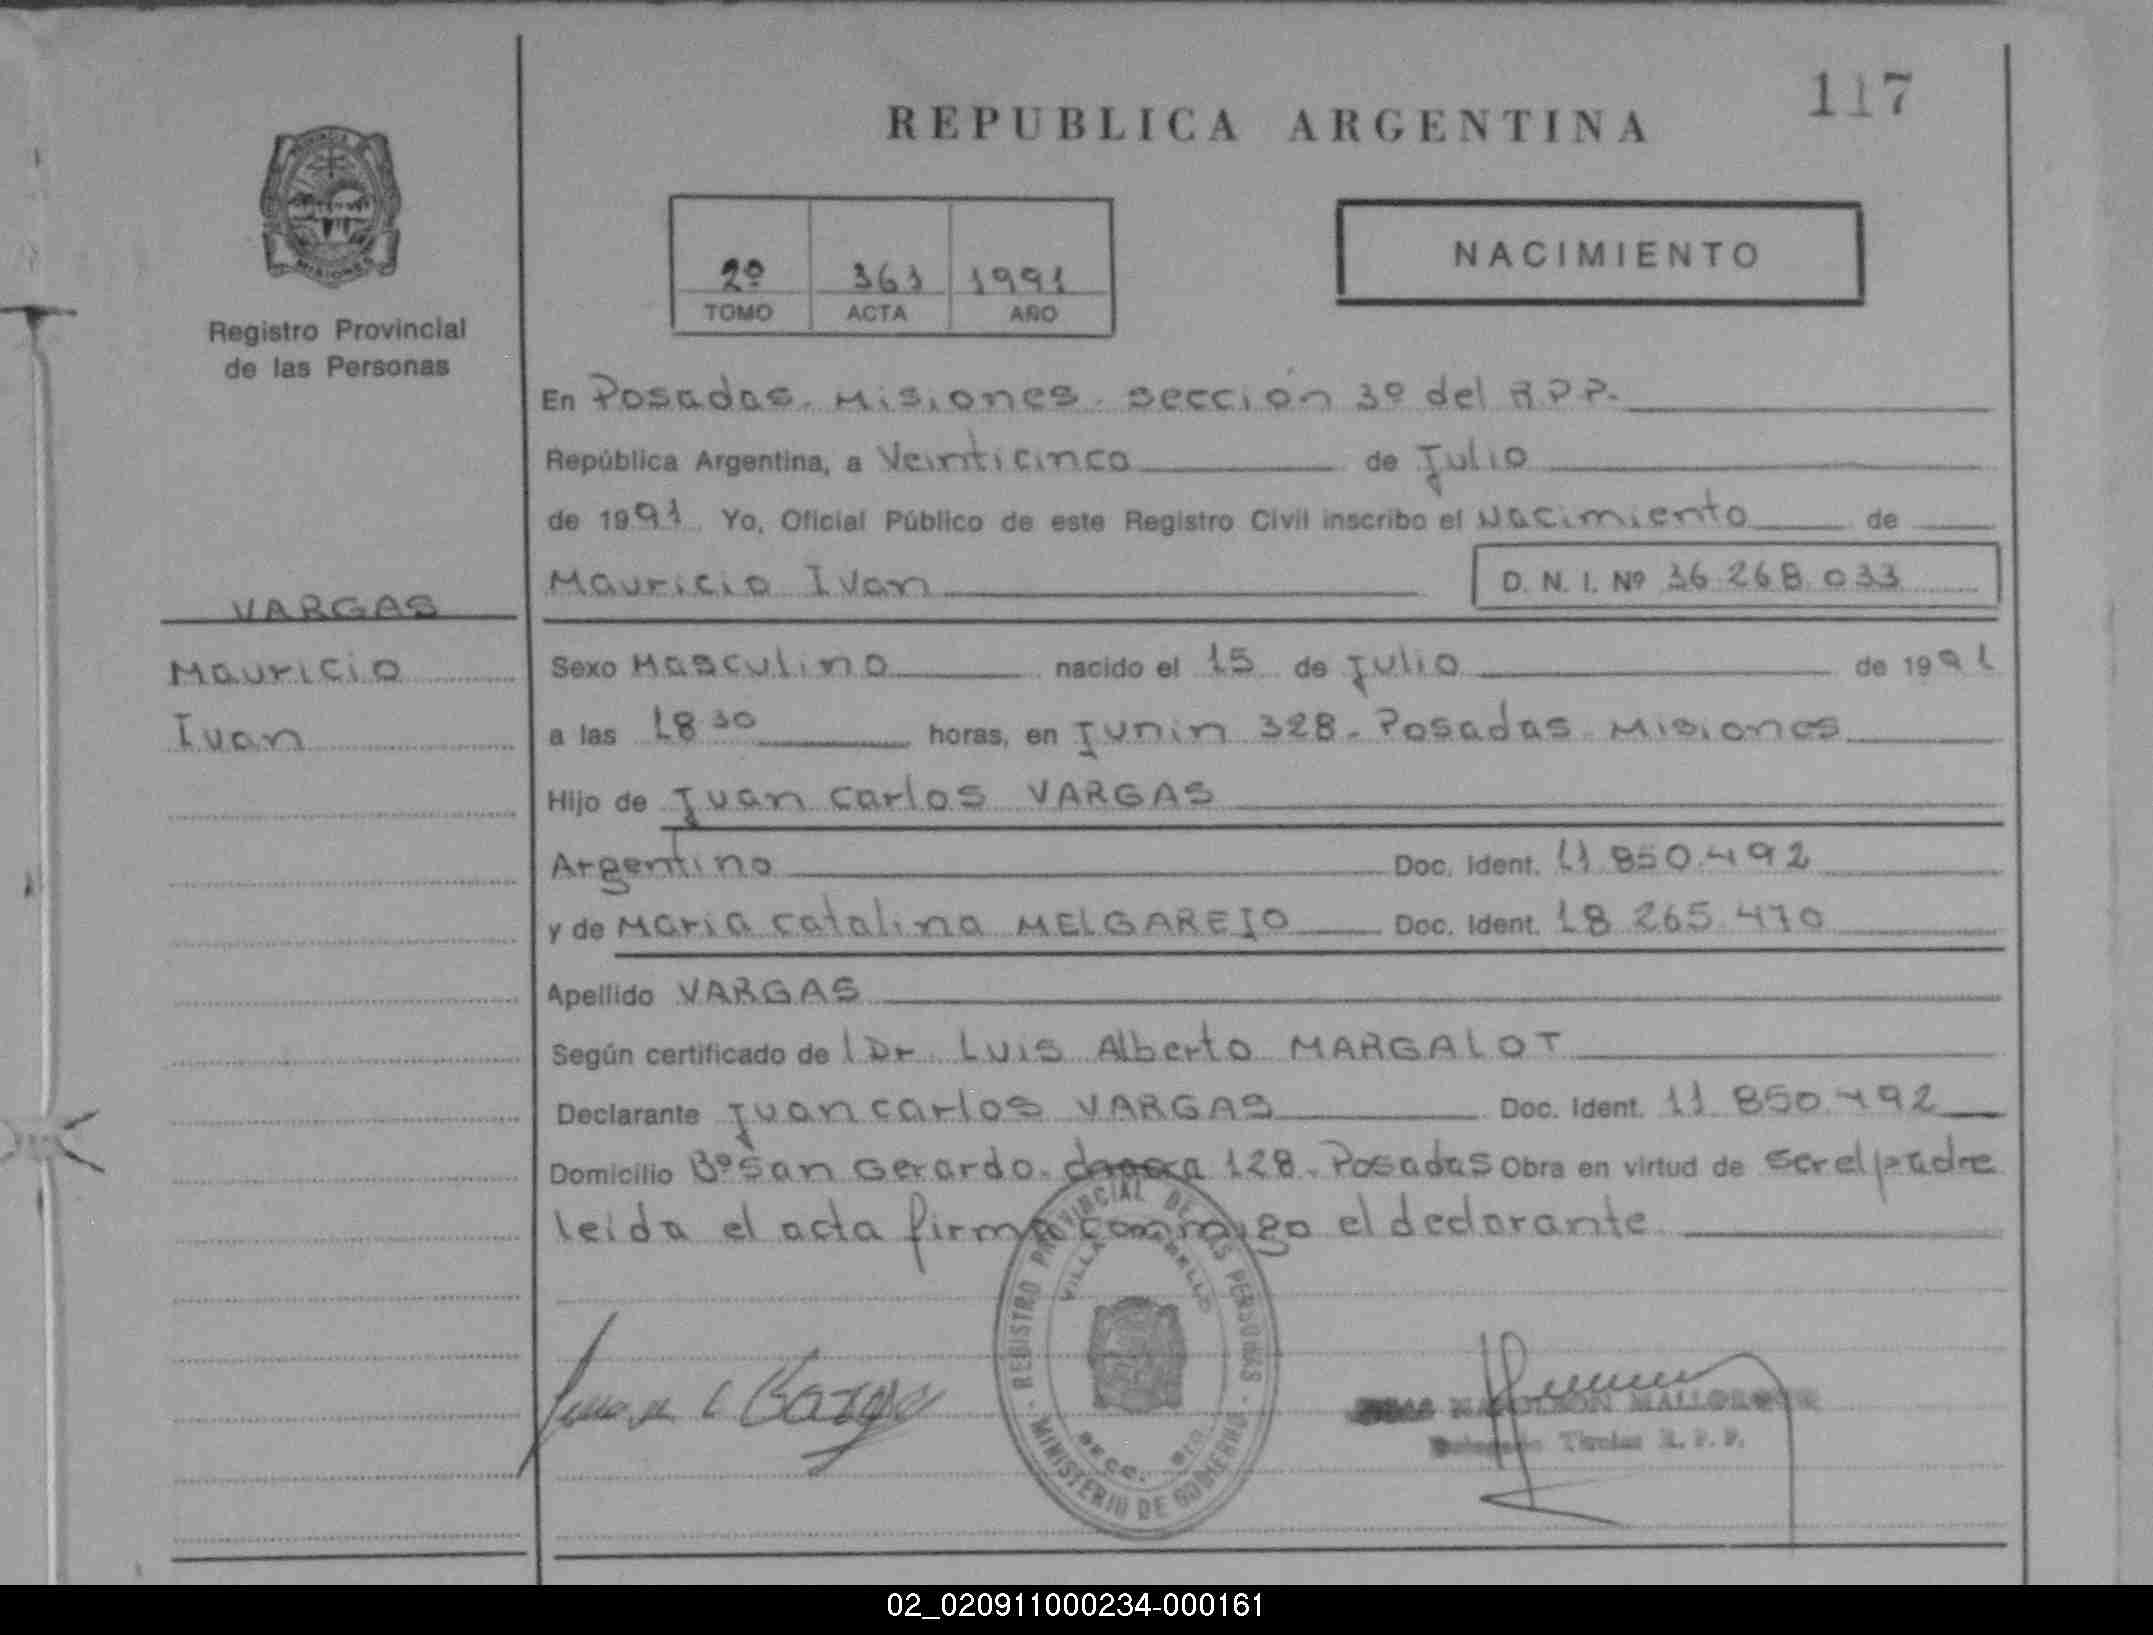 117
REPUBLICA ARGENTINA
MISIONES
Registro Provincial
de las Personas
2º 361 1991
TOMO ACTA AÑO
NACIMIENTO
En Posadas. Misiones. Sección 3º del R.P.P.
República Argentina, a Veinticinco de Julio
de 1991 Yo, Oficial Público de este Registro Civil inscribo el Nacimiento de
Mauricio Ivan D. N. I. Nº 36.268.033
VARGAS
Mauricio
Ivan
Sexo Masculino nacido el 15 de Julio de 1991
a las 18 30 horas, en Junin 328. Posadas Misiones
Hijo de Juan Carlos VARGAS
Argentino Doc. Ident. 11.850.492
y de Maria Catalina MELGAREJO Doc. Ident. 18.265.470
Apellido VARGAS
Según certificado de l Dr. Luis Alberto MARGALOT
Declarante Juan Carlos VARGAS Doc. Ident. 11.850.492
Domicilio Bº San Gerardo. 128. Posadas Obra en virtud de ser el padre
leida el acta firma conmigo el declarante
REGISTRO PROVINCIAL DE LAS PERSONAS
VILLA
MINISTERIO DE GOBIERNO
Juan C Vargas
NAPOLEON
Delegado Titular R. P. P.
02_020911000234-000161